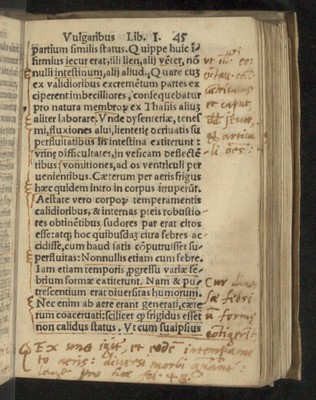 Vulgaribus Lib. I. 45
partium similis status. Quippe huic ī-
firmius iecur erat, illi lien, alij vēter, nō
nulli intestinum, alij aliud. Quare cuȝ
ex validioribus excremētum partes ex
ciperent imbecilliores, consequebatur
pro natura
aliter laborare. Vnde dysenteriæ, tenes
mi, fluxiones alui, lienterię deriuatis su
perfluitatibus in intestina extiterunt:
vrinę difficultates, in vesicam deflectē
tibus: vomitiones, ad os ventriculi per
uenientibus. Cæterum per aeris frigus
hæc quidem intro in corpus irruperūt.
Aestate vero temperamentis
calidioribus, & internas pteis robustio-
res obtinētibus sudores per erat citos
esse: atqȝ hoc quibusdaȝ citra febres ac
cidisse, cum haud satis cōputruisset su-
perfluitas: Nonnullis etiam cum febre.
Iam etiam temporis ꝓgressu variæ fe-
brium formæ extiterunt. Nam & pu-
trescentium erat diuersitas humorum.
Nec enim ab aere erant generati, cæte
rum coaceruati: scilicet frigidus esset
non calidus status. Vt cum suaipsius
et caput
Cur
febri
formę
extiterīt
Ex uno et eodē intempame
to aeris: diuersi morbi
pro hac fol. 43.